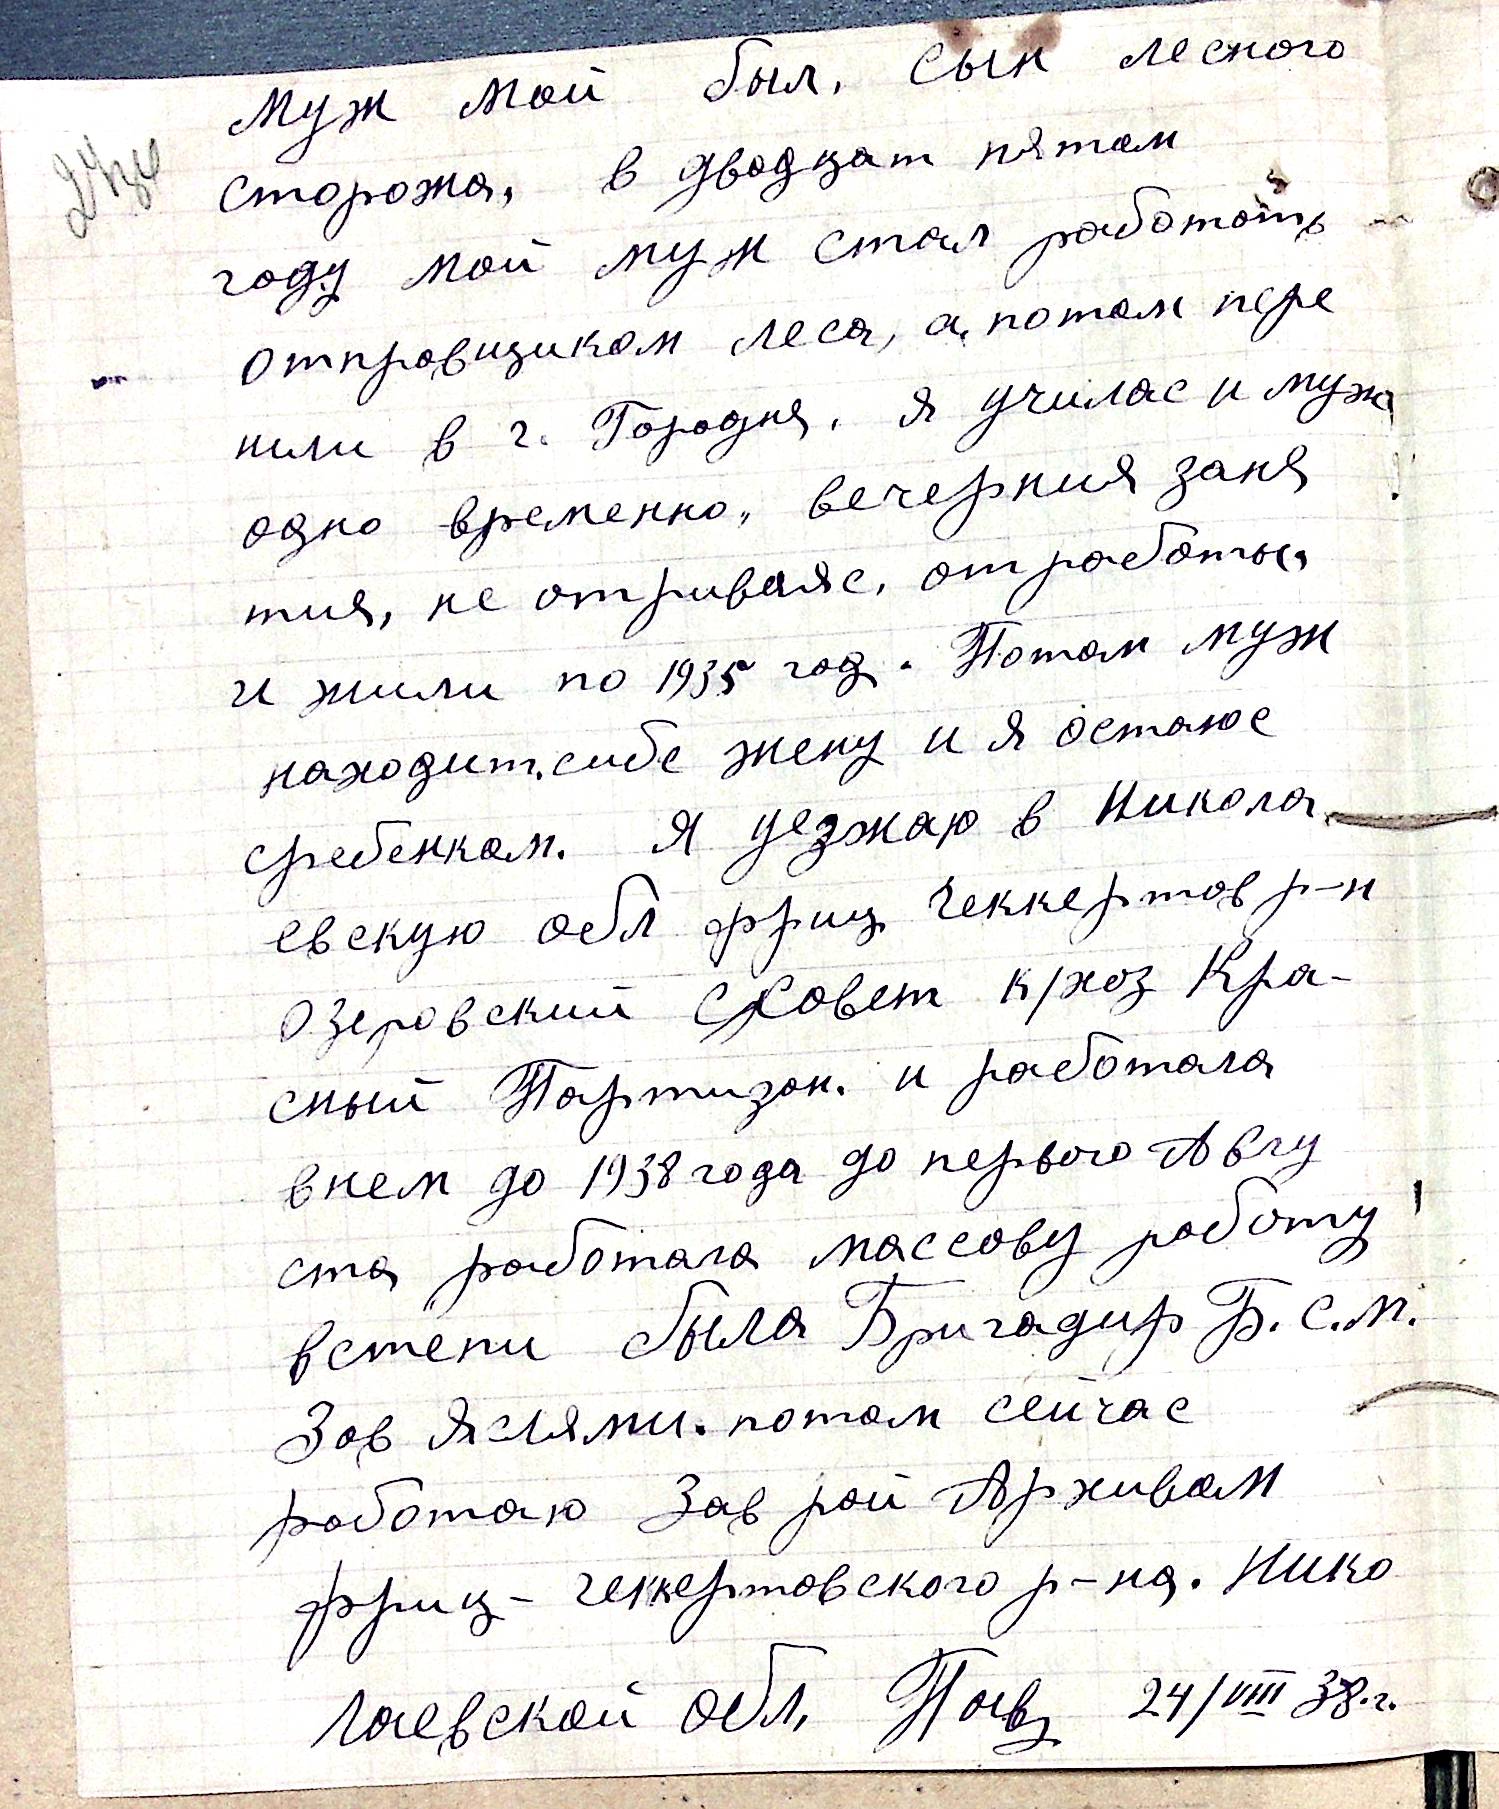 муж мой был, сын лесного
сторожа, в двадцат пятом
году мой муж стал работать
отправщиком леса, а, потом пере
шли в г. Городня, я училас и муж
одно временно, вечерния заня
тия, не отриваяс, от работы,
и жили по 1935 год. Потом муж
находит себе жену и я остаюс
сребенком. Я уезжаю в Никола
евскую обл фриц Геккертов р-н
Озеровский с/совет к/хоз Кра-
сный Партизан. и работала
внем до 1938 года до первого Авгу
ста, работала массову работу
встепи была Бригадир Б.С.М.
Зав яслями. потом сейчас
работаю Зав рай Архивам
фриц-геккертовского р-на. Нико
лаевской обл, 24/VIII 38.г.